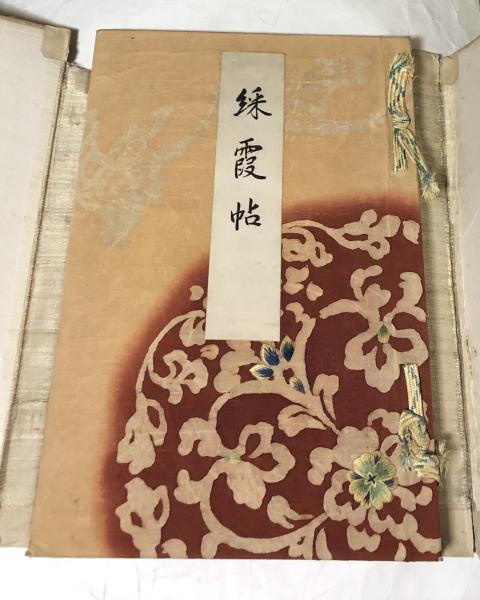 綵霞帖